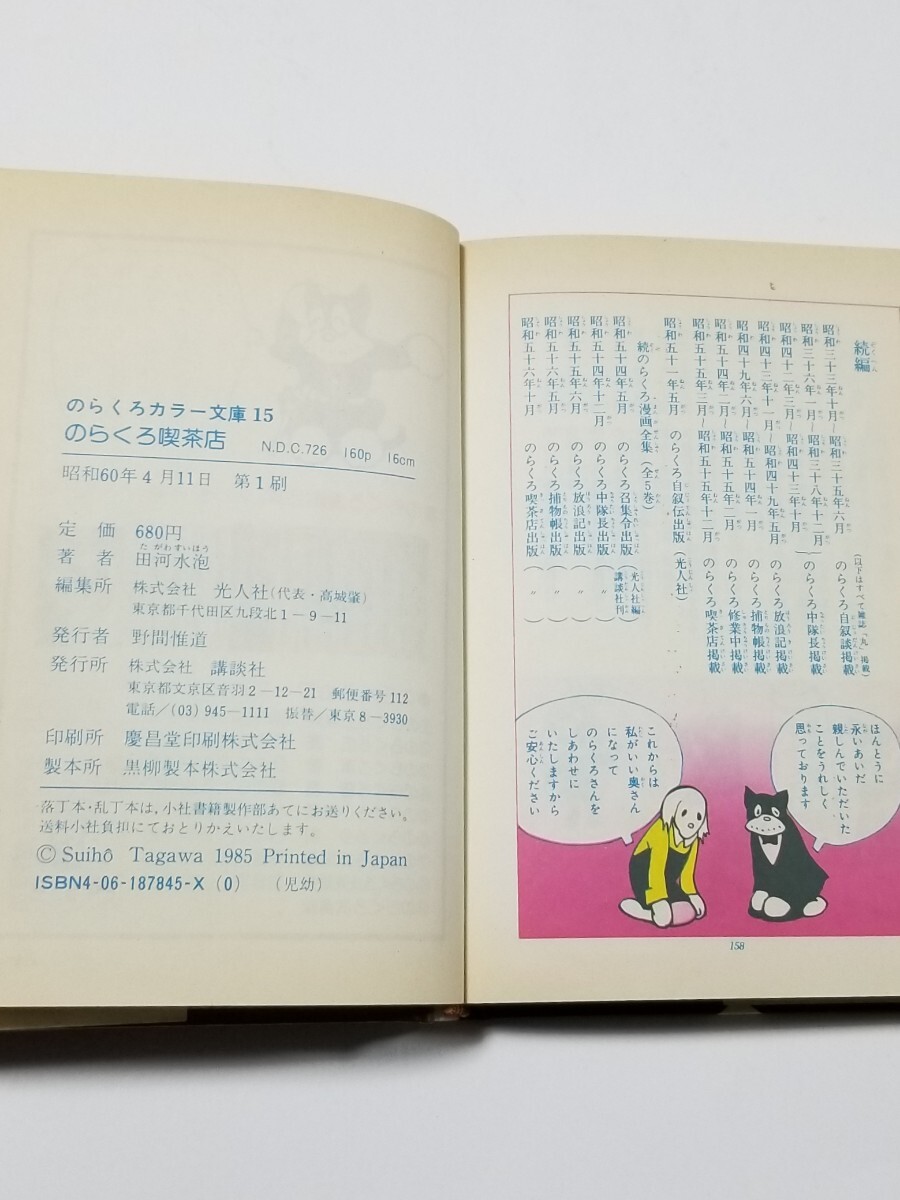 続編
(以下はすべて雑誌「丸」掲載)
昭和三十三年十月~昭和三十五年六月 のらくろ自叙談掲載
昭和三十六年一月~昭和三十八年十二月
昭和四十二年三月~昭和四十三年十月 のらくろ中隊長掲載
昭和四十三年十一月~昭和四十九年五月 のらくろ放浪記掲載
昭和四十九年六月~昭和五十四年一月 のらくろ捕物帳掲載
昭和五十四年二月~昭和五十五年二月 のらくろ修業中掲載
昭和五十五年三月~昭和五十五年十二月 のらくろ喫茶店掲載
昭和五十一年五月 のらくろ自叙伝出版(光人社)
続のらくろ漫画全集(全5巻)
昭和五十四年五月 のらくろ召集令出版(光人社編 講談社刊)
昭和五十四年十二月 のらくろ中隊長出版(〃)
昭和五十五年五月 のらくろ放浪記出版(〃)
昭和五十六年五月 のらくろ捕物帳出版(〃)
昭和五十六年十月 のらくろ喫茶店出版(〃)
ほんとうに
永いあいだ
親しんでいただいた
ことをうれしく
思っております
これからは
私がいい奥さん
になって
のらくろさんを
しあわせに
いたしますから
ご安心ください
158
のらくろカラー文庫15
のらくろ喫茶店 N.D.C.726 160p 16cm
昭和60年4月11日 第1刷
定価 680円
著者 田河水泡
編集所 株式会社 光人社(代表・高城肇)
東京都千代田区九段北1-9-11
発行者 野間惟道
発行所 株式会社 講談社
東京都文京区音羽2-12-21 郵便番号112
電話/(03)945-1111 振替/東京8-3930
印刷所 慶昌堂印刷株式会社
製本所 黒柳製本株式会社
落丁本・乱丁本は,小社書籍製作部あてにお送りください。
送料小社負担にておとりかえいたします。
© Suihô Tagawa 1985 Printed in Japan
ISBN4-06-187845-X (0) (児幼)